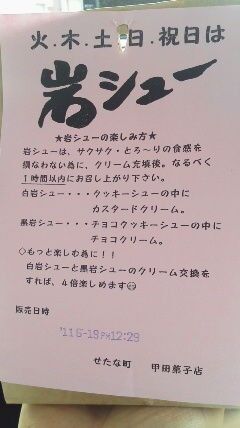 火.木.土.日.祝日は
岩シュー
★岩シューの楽しみ方★
岩シューは、サクサク・とろ～りの食感を
損なわない為に、クリーム充填後。なるべく
1時間以内にお召し上がり下さい。
白岩シュー・・・クッキーシューの中に
カスタードクリーム。
黒岩シュー・・・チョコクッキーシューの中に
チョコクリーム。
◇もっと楽しむ為に！！
白岩シューと黒岩シューのクリーム交換を
すれば、4倍楽しめます
販売日時
'11 5-18 PM12:29
せたな町 甲田菓子店